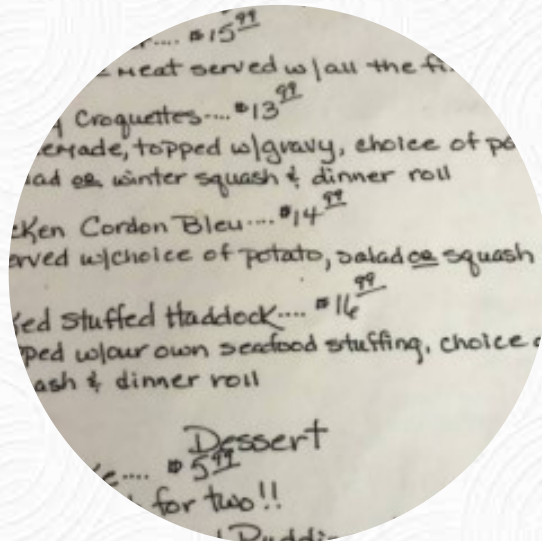 .... $15.99
meat served w/all the
Croquettes.... $13.99
topped w/gravy, choice of
or winter squash & dinner roll
Cordon Bleu.... $14.99
w/choice of potato, salad or squash
Stuffed Haddock.... $16.99
w/our own seafood stuffing, choice
& dinner roll
Dessert
.... $5.99
for two!!